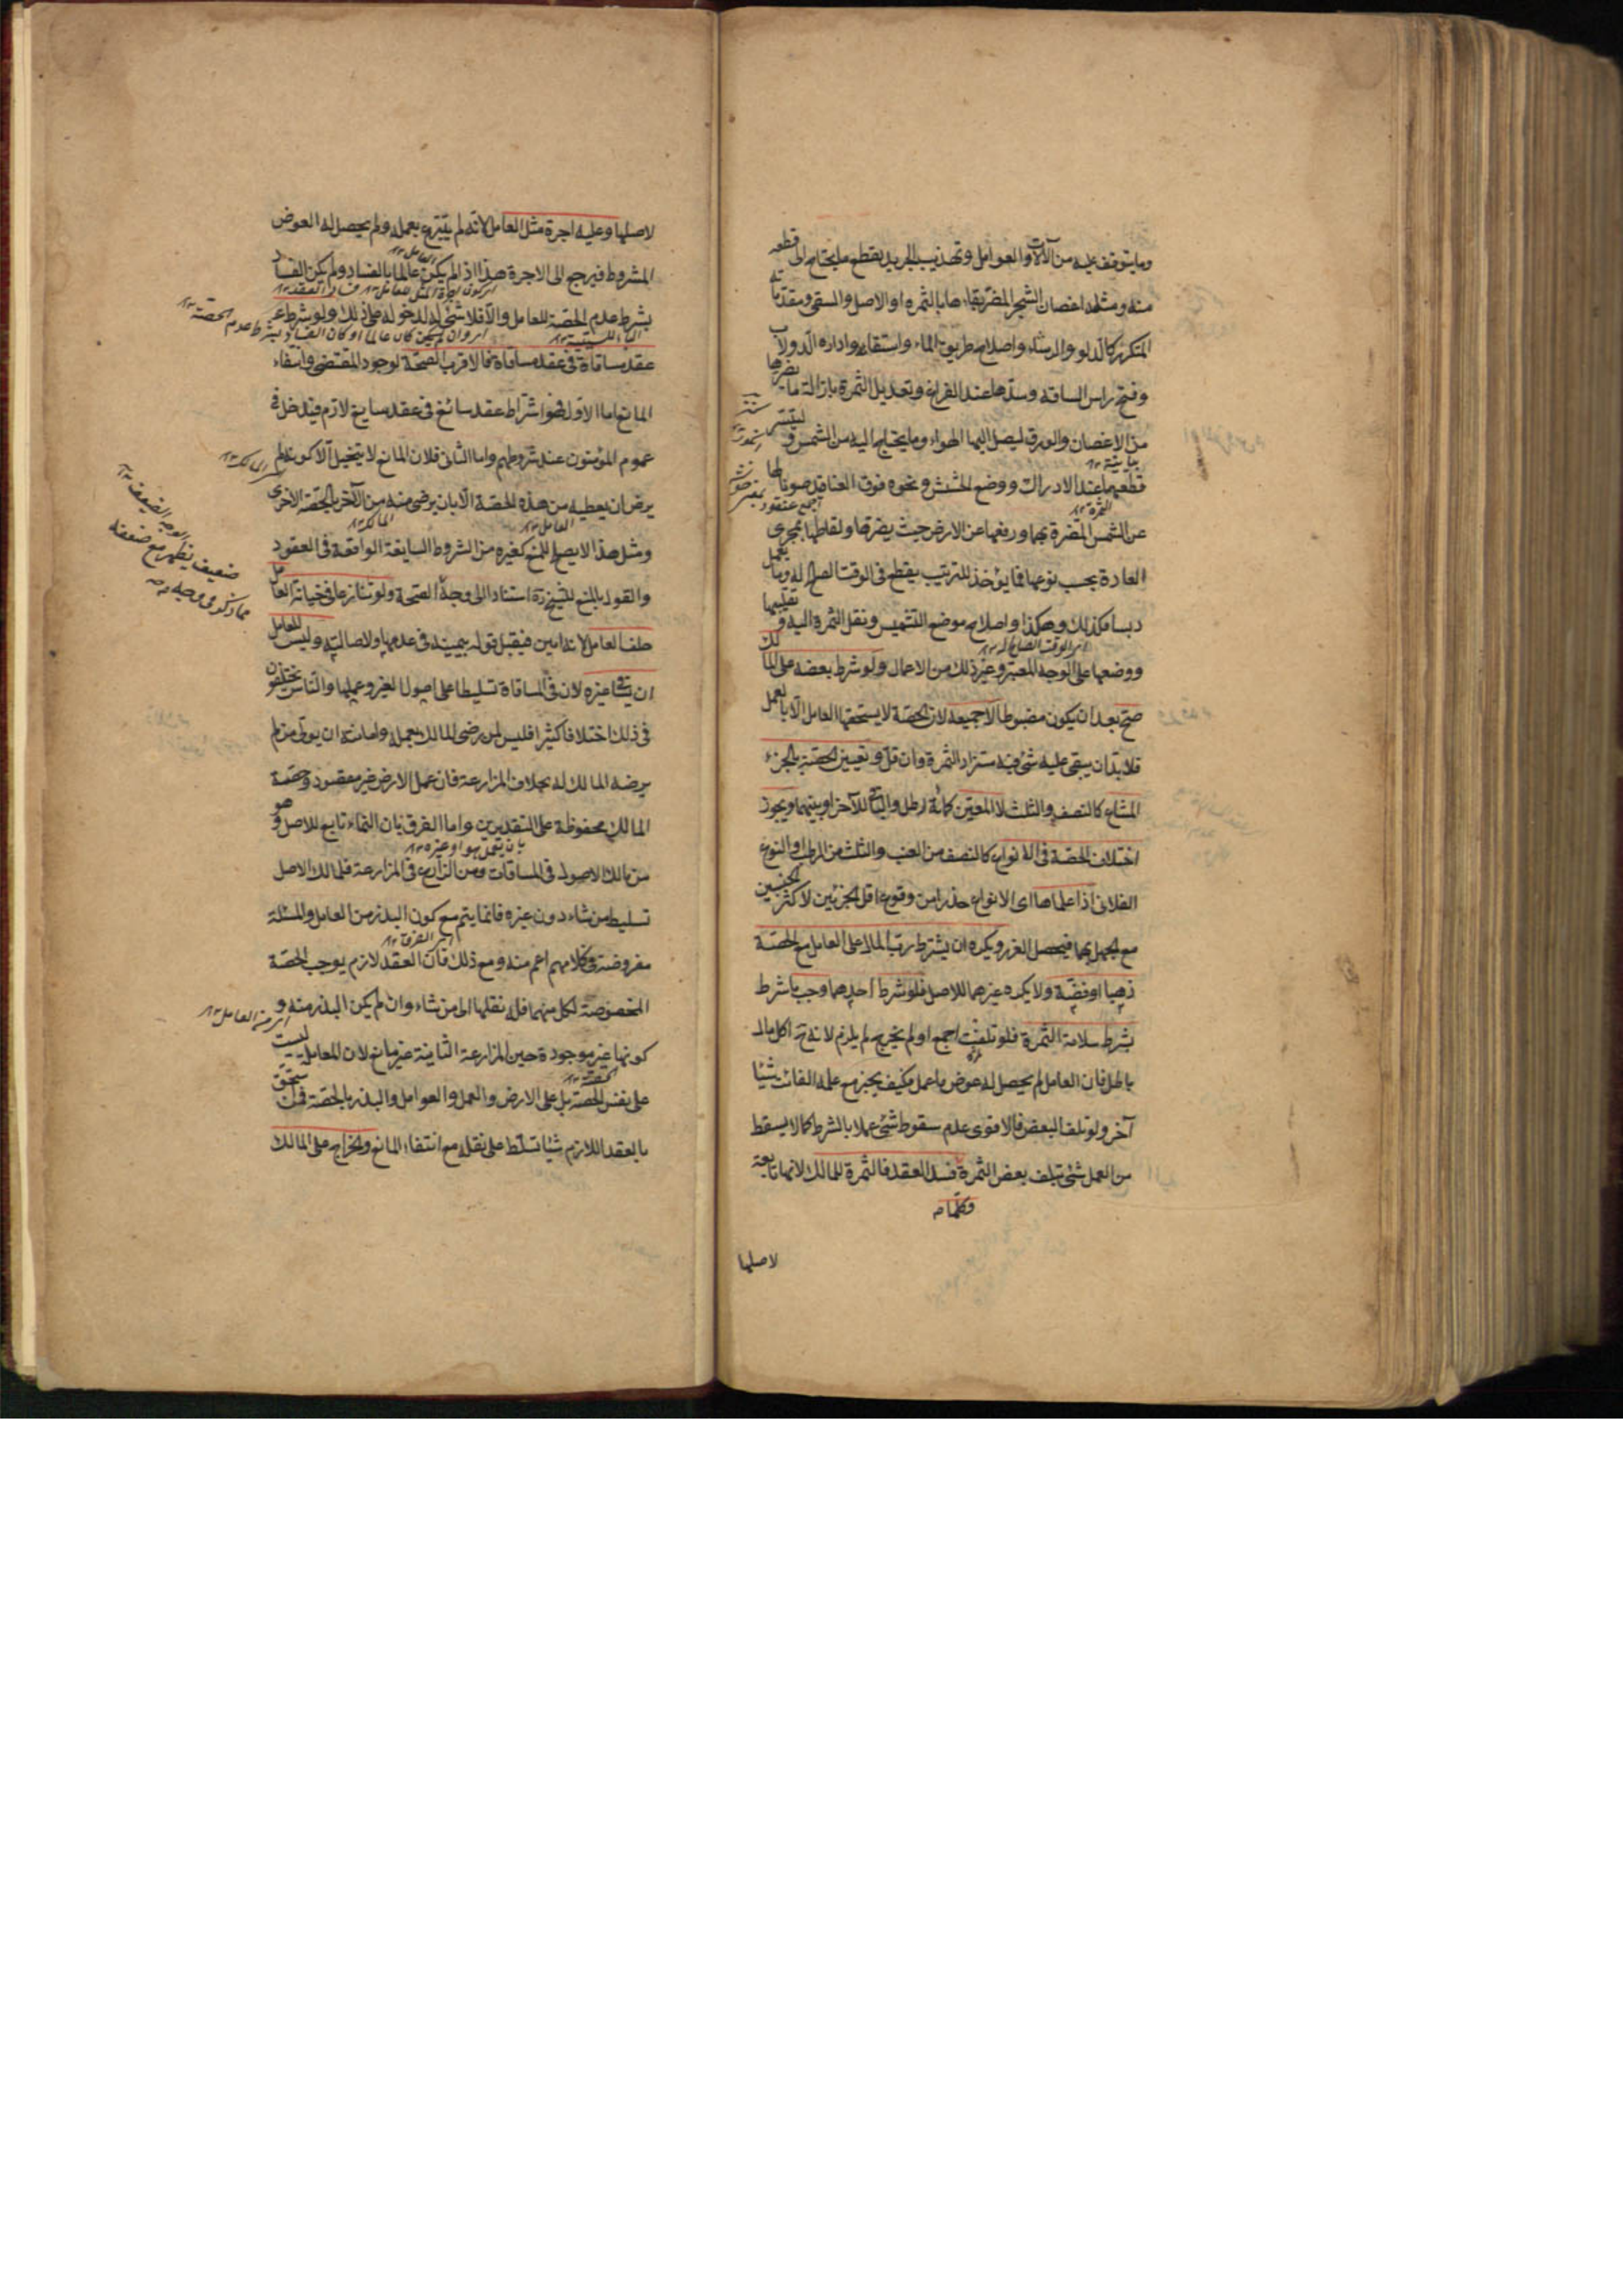 وما يتوقف عليه من الآلات والعوامل وتهذيب الجريد بقطع ما يحتاج الى قطعه
منه ومثله اغصان الشجر المضر بقاءها بالثمره او الاصل والسقى ومقدماته
المتكرر كالدلو والرشاء واصلاح طريق الماء واستقائه وادارة الدولاب
وفتح راس الساقيه وسدها عند الفراغ وتعديل الثمرة بازالة ما يضرها
من الاغصان والورق ليصل اليها الهواء وما يحتاج اليه من الشمس و ليتيسر
قطعها عند الادراك ووضع الحشيش ونحوه فوق العناقيد صونا لها
عن الشمس المضرة بها ورفعها عن الارض حيث يضرها ولقاطها بمجرى
العادة بحسب نوعها فما يؤخذ للزبيب يقطع فى الوقت الصالح له وما يعمل
دبسا فكذلك وهكذا واصلاح موضع التشميس ونقل الثمرة اليه و تقليبها
اى الوقت الصالح له ١٢
ووضعها على الوجه المعتبر وغير ذلك من الاعمال ولو شرط بعضه على المالك
صح بعد ان يكون مضبوطا لا جميعه لان الحصة لا يستحقها العامل الا بالعمل
فلا بد ان يبقى عليه شئ فيه مستزاد الثمرة وان قل و تعيين الحصة بالجزء
المشاع كالنصف والثلث لا المعين كمائة رطل والباقى للآخر او بينهما ويجوز
اختلاف الحصة فى الانواع كالنصف من العنب والثلث من الرطب او النوع
الفلانى اذا علماها اى الانواع حذرا من وقوع اقل الجزئين لاكثر الجنسين
مع الجهل بها فيحصل الغرر ويكره ان يشترط رب المال على العامل مع الحصة
ذهبا او فضة ولا يكره غيرهما للاصل فلو شرط احدهما وجب ما شرط
بشرط سلامة الثمرة فلو تلفت اجمع او لم يخرج لم يلزم لانه ح اكل مال
باطل فان العامل لم يحصل له عوض ما عمل فكيف يخرج مع عمله الفائت شيئا
آخر ولو تلف البعض فالاقوى عدم سقوط شئ عملا بالشرط كما لا يسقط
من العمل شئ بتلف بعض الثمرة فسد العقد فالثمرة للمالك لانها تابعة
وكلما
لاصلها
لاصلها وعليه اجرة مثل العامل لانه لم يتبرع بعمله ولم يحصل له العوض
المشروط فيرجع الى الاجرة هذا اذا لم يكن عالما بالفساد ولم يكن الفساد
بشرط عدم الحصة للعامل والا فلا شئ له لدخوله على ذلك ولو شرط
عقد مساقاة فى عقد مساقاة فالاقرب الصحة لوجود المقتضى وانتفاء
المانع اما الاول فهو اشتراط عقد سائغ فى عقد سايغ لازم فيدخل فى
عموم المؤمنون عند شروطهم واما الثانى فلان المانع لا يتخيل الا كونه لم
يرض ان يعطيه من هذه الحصة الا بان يرضى منه من الآخر بالحصة الاخرى
العامل ١٢ المالك ١٢
ومثل هذا لا يصلح للمنع كغيره من الشروط السايغة الواقعة فى العقود
والقول بالمنع للشيخ ره استنادا الى وجه الصحة ولو تنازعا فى خيانة العامل
حلف العامل لانه امين فيقبل قوله بيمينه فى عدمها ولاصالته وليس للعامل
ان يساقى غيره لان فى المساقاة تسليطا على اصول الغير وعملها والناس يختلفون
فى ذلك اختلافا كثيرا فليس لمن رضى المالك بعمله وامانته ان يولى من لم
يرضه المالك له بخلاف المزارعة فان عمل الارض غير مقصود وحصة
المالك محفوظة على التقديرين واما الفرق بان النماء تابع للاصل وهو
من مالك الاصول فى المساقات ومن الزارع فى المزارعة فلمالك الاصل
تسليط من شاء دون غيره فانما يتم مع كون البذر من العامل والمسئلة
مفروضة فى كلامهم اعم منه ومع ذلك فان العقد لازم يوجب الحصة
المخصوصة لكل منهما فله نقلها الى من شاء وان لم يكن البذر منه و
كونها غير موجودة حين المزارعة الثانية غير مانع لان المعامل ليست
على نفس الحصة بل على الارض والعمل والعوامل والبذر بالحصة فمن استحق
بالعقد اللازم شيئا تسلط على نقله مع انتفاء المانع والخراج على المالك